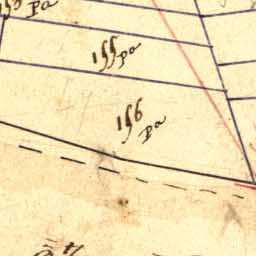 Pa
155
Pa
156
Pa